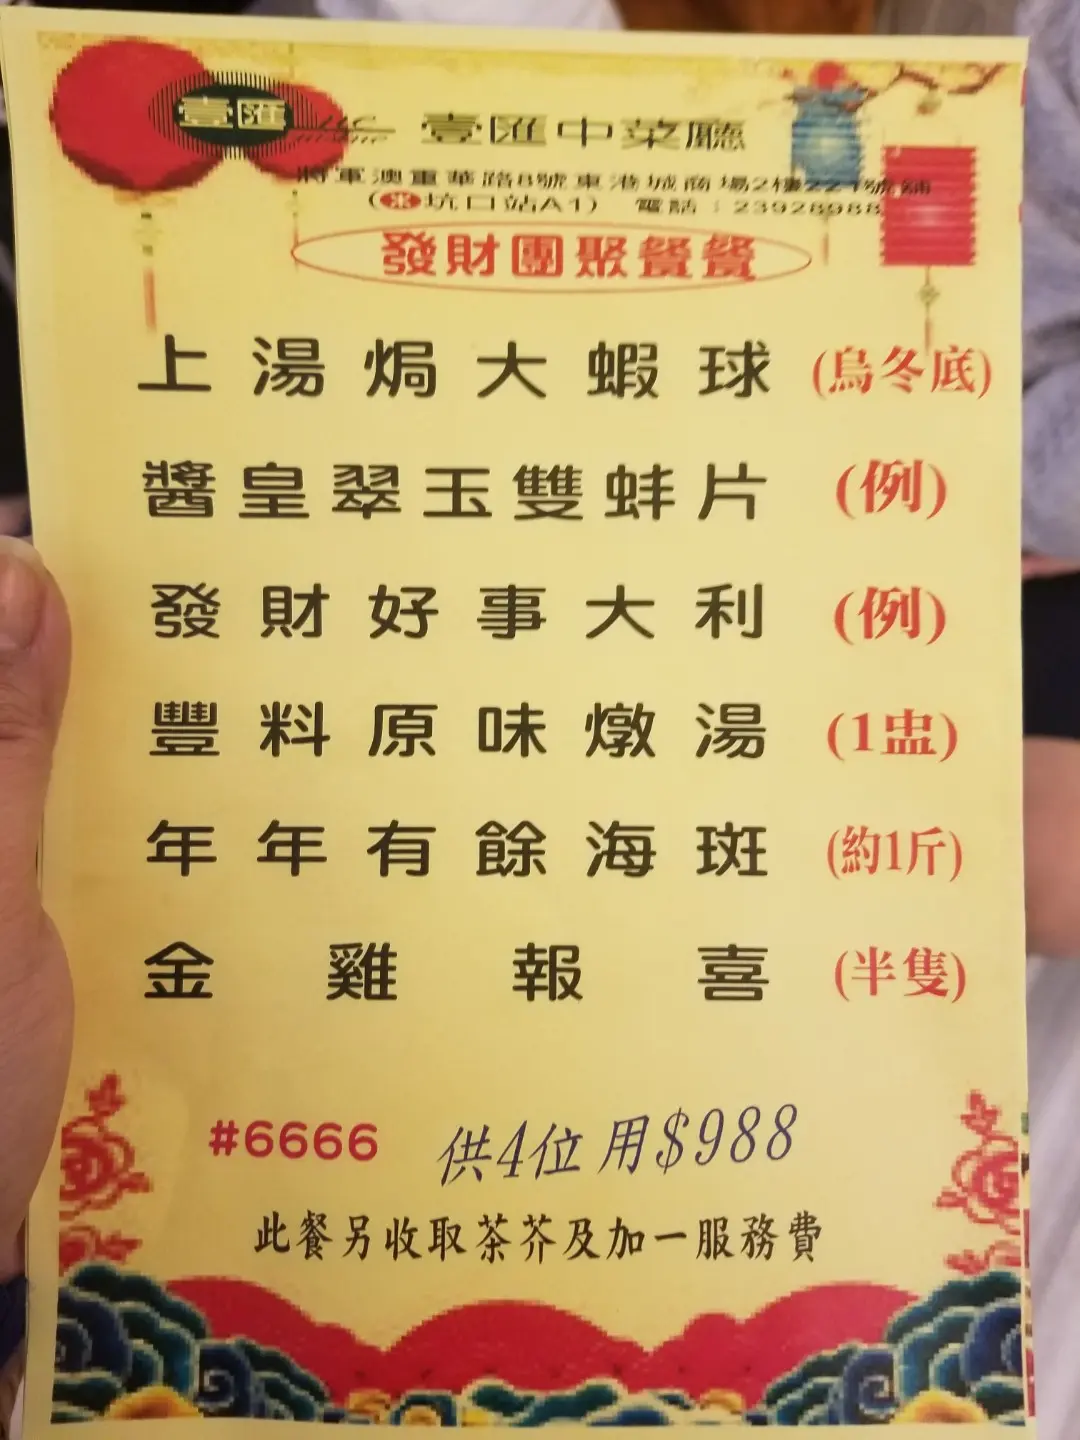 壹匯
壹匯中菜廳
將軍澳重華路8號東港城商場2樓221號舖
(坑口站A1) 電話：23928988
發財團聚餐餐
上湯焗大蝦球 (烏冬底)
醬皇翠玉雙蚌片 (例)
發財好事大利 (例)
豐料原味燉湯 (1盅)
年年有餘海斑 (約1斤)
金雞報喜 (半隻)
#6666 供4位用$988
此餐另收取茶芥及加一服務費